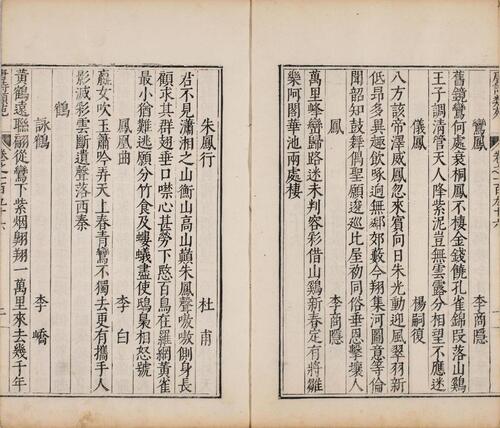 鸞鳳 李商隱
舊鏡鸞何處衰桐鳳不棲金錢饒孔雀錦段落山雞
王子調清管天人降紫泥豈無雲露分相望不應迷
儀鳳 楊嗣復
八方該帝澤威鳳忽來賓向日朱光動迎風翠羽新
低昂多異趣飲啄逈無鄰郊藪今翔集河圖意等倫
聞韶知鼓舞偶聖願逡巡比屋初同俗垂恩擊壤人
鳳 李商隱
萬里峰巒歸路迷未判容彩借山雞新春定有將雛
樂阿閣華池兩處棲
朱鳳行 杜甫
君不見瀟湘之山衡山高山巔朱鳳聲嗷嗷側身長
顧求其群翅垂口噤心甚勞下愍百鳥在羅網黃雀
最小猶難逃願分竹食及螻蟻盡使鴟梟相怒號
鳳凰曲 李白
嬴女吹玉簫吟弄天上春青鸞不獨去更有攜手人
影滅彩雲斷遺聲落西秦
鶴
詠鶴 李嶠
黃鶴遠聯翩從鸞下紫烟翱翔一萬里來去幾千年